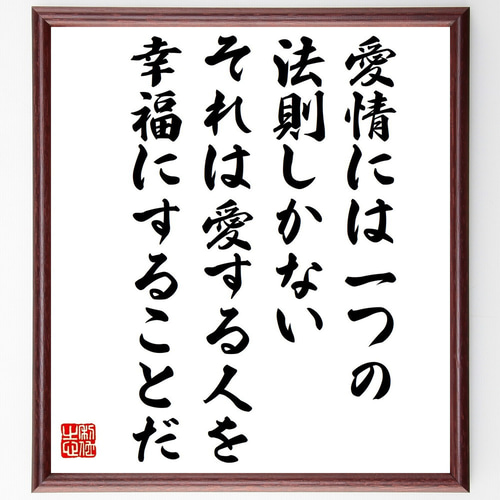 愛情には一つの
法則しかない
それは愛する人を
幸福にすることだ